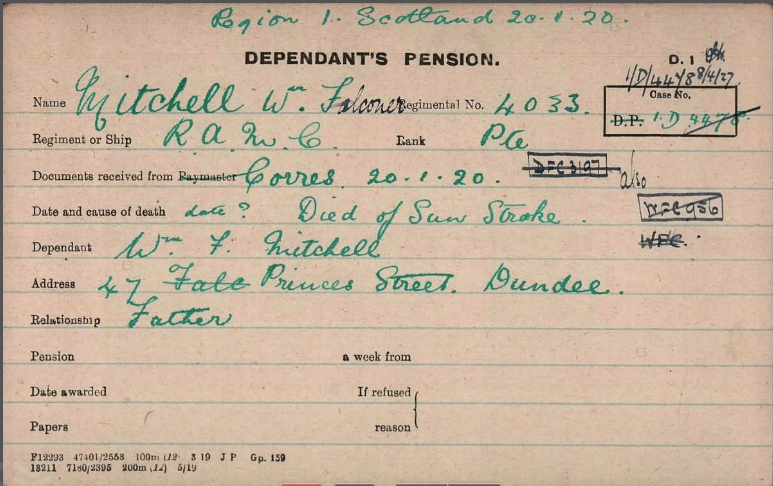 Region 1. Scotland 20.1.20.
DEPENDANT'S PENSION.
D. 1
1/D/4478 8/4/27
Name Mitchell Wm. Falconer Regimental No. 4033.
Case No.
D.P. 1.D 4478.
Regiment or Ship R A M C Rank Pte
Documents received from Paymaster Corres. 20.1.20.
DFC3197 also
Date and cause of death date? Died of Sun Stroke.
WFC956
Dependant Wm F. Mitchell
WFC.
Address 47 Princes Street. Dundee.
Relationship Father
Pension a week from
Date awarded If refused
Papers reason
F12293 47401/2553 100m (12) 3 19 J P Gp. 159
13211 7180/2395 200m (12) 5/19